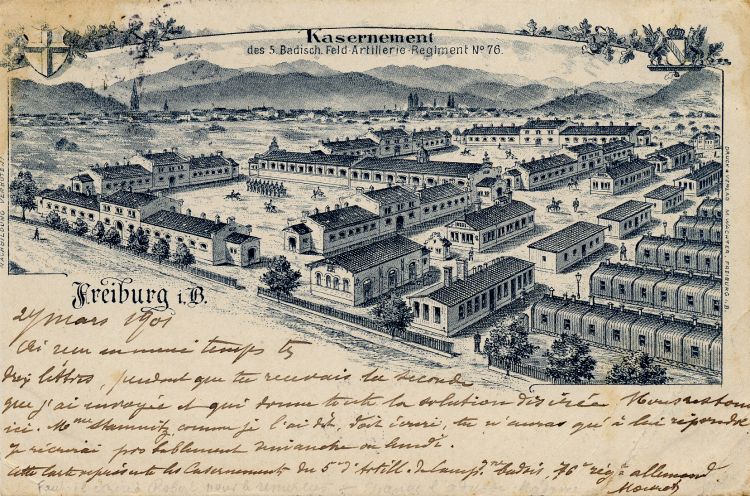 Kasernement
des 5. Badisch. Feld-Artillerie-Regiment No 76.
Freiburg i. B.
27 mars 1901
ai reçu en même temps te
deux lettres, pendant que tu recevais la seconde
que j'ai envoyée et qui donne toute la solution désirée Nous restons
ici. Mme comme je l'ai dit, doit écrire, tu n'auras qu'à lui répondre
Je écrirai probablement dimanche ou lundi.
cette carte représente les Casernements du 5e d'Artill. de Camp. badois, 76e régt allemand